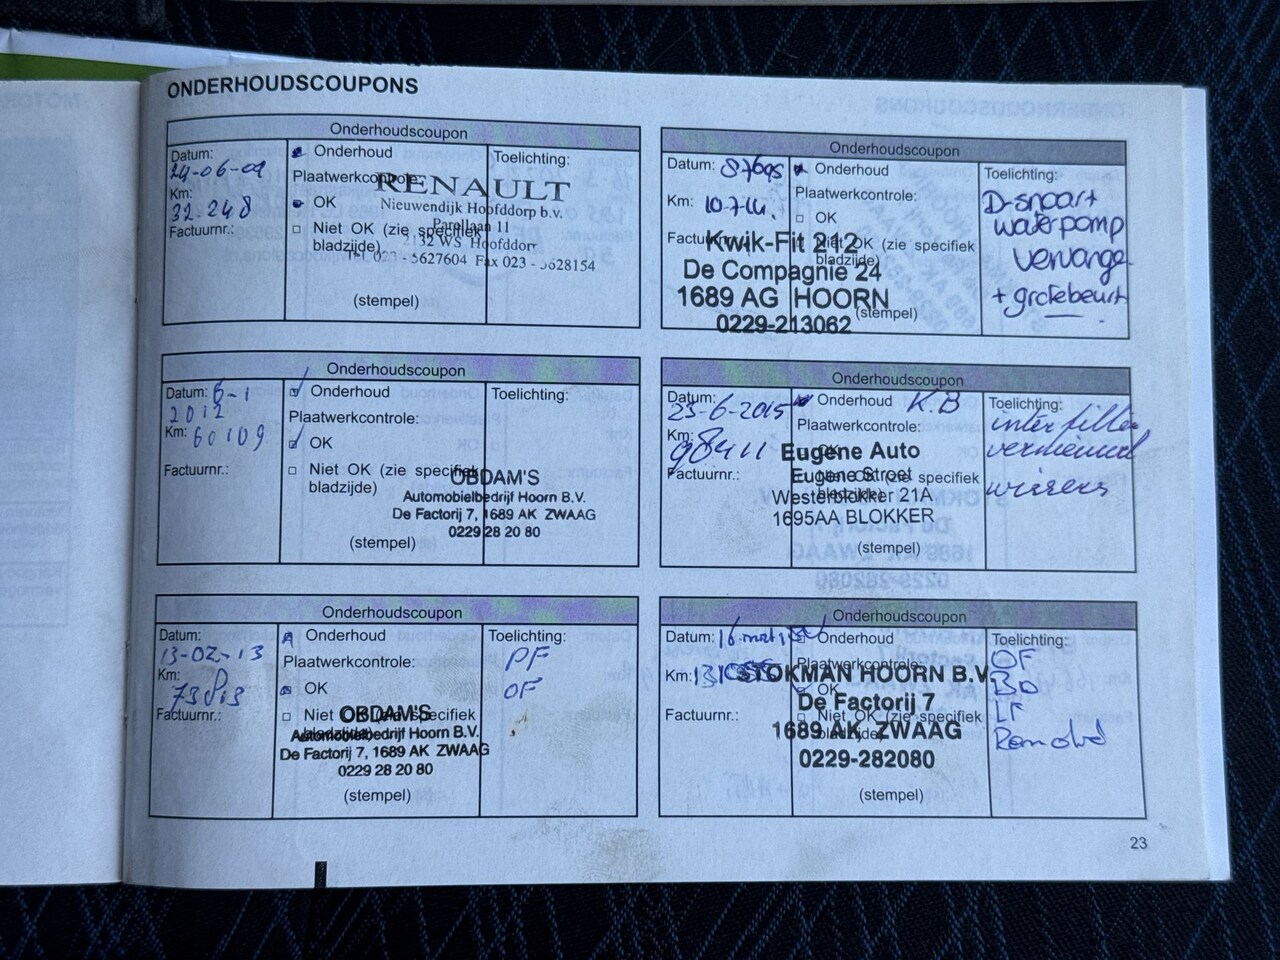 ONDERHOUDSCOUPONS
Onderhoudscoupon
Datum:
24-06-09
Km:
32.248
Factuurnr.:
Onderhoud
Plaatwerkcontrole:
OK
Niet OK (zie specifiek
bladzijde)
(stempel)
Toelichting:
RENAULT
Nieuwendijk Hoofddorp b.v.
Parellaan 11
2132 WS Hoofddorp
Tel 023 - 5627604 Fax 023 - 5628154
Onderhoudscoupon
Datum: 6-1
2012
Km: 60109
Factuurnr.:
Onderhoud
Plaatwerkcontrole:
OK
Niet OK (zie specifiek
bladzijde)
(stempel)
Toelichting:
OBDAM'S
Automobielbedrijf Hoorn B.V.
De Factorij 7, 1689 AK ZWAAG
0229 28 20 80
Onderhoudscoupon
Datum:
13-02-13
Km:
Factuurnr.:
Onderhoud
Plaatwerkcontrole:
OK
Niet OK (zie specifiek
bladzijde)
(stempel)
Toelichting:
PF
OF
OBDAM'S
Automobielbedrijf Hoorn B.V.
De Factorij 7, 1689 AK ZWAAG
0229 28 20 80
Onderhoudscoupon
Datum: 87695
Km: 10.7.14.
Factuurnr.:
Onderhoud
Plaatwerkcontrole:
OK
Niet OK (zie specifiek
bladzijde)
(stempel)
Kwik-Fit 212
De Compagnie 24
1689 AG HOORN
0229-213062
Toelichting:
D-snaar+
waterpomp
vervange
+ grotebeurt
Onderhoudscoupon
Datum:
23-6-2015
Km:
98411
Factuurnr.:
Onderhoud K.B
Plaatwerkcontrole:
OK
Niet OK (zie specifiek
bladzijde)
(stempel)
Eugene Auto
Eugene Stroet
Westerblokker 21A
1695AA BLOKKER
Toelichting:
interfilter
vernieuwd
wissers
Onderhoudscoupon
Datum: 16 mrt
Km:
Factuurnr.:
Onderhoud
Plaatwerkcontrole:
OK
Niet OK (zie specifiek
bladzijde)
(stempel)
STOKMAN HOORN B.V.
De Factorij 7
1689 AK ZWAAG
0229-282080
Toelichting:
OF
LF
23